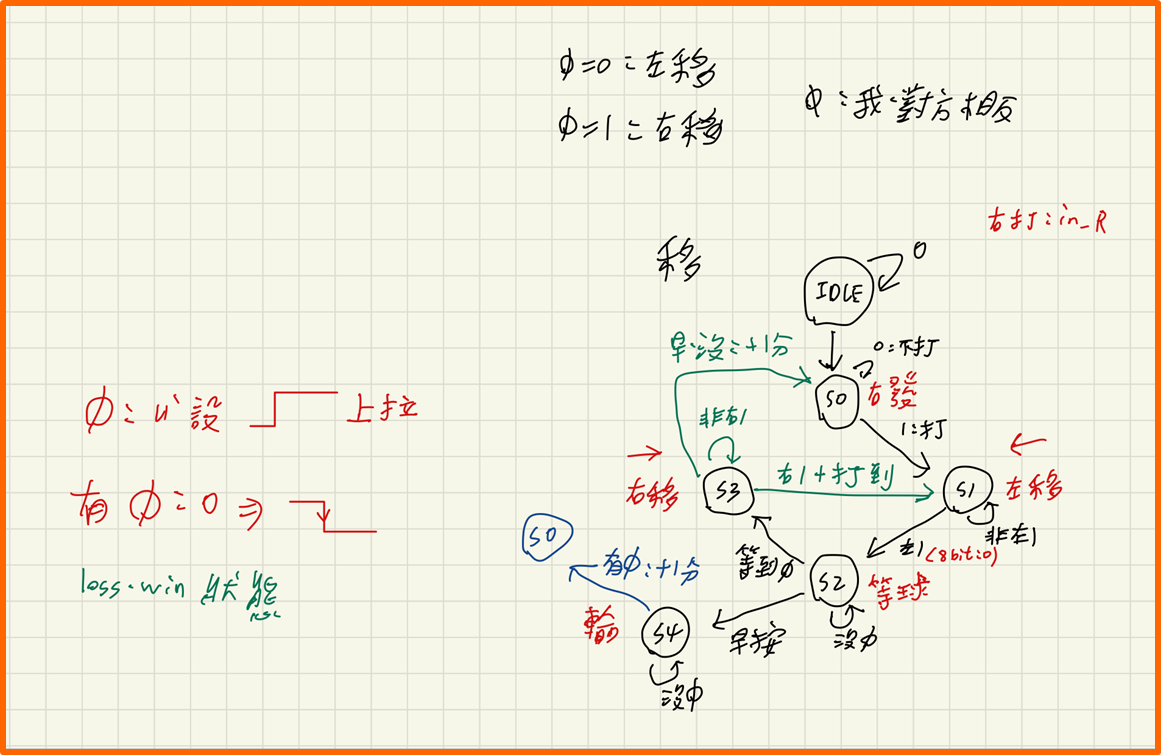 φ=0：左移
φ=1：右移
φ：我、對方相反
右打：in_R
移
IDLE
0
早、沒：+1分
0：不打
S0
右發
1：打
非右1
右移
S3
右1+打到
S1
左移
非左1
左1(8bit:0)
等到φ
S2
等球
沒φ
早按
S4
輸
沒φ
有φ：+1分
S0
設
上拉
有φ：0 ⇒
loss.win 狀態